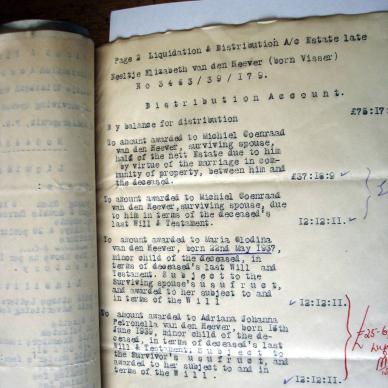 Page 2 Liquidation & Distribution A/c Estate late
Neeltje Elizabeth van den Heever (born Visser)
No 3463/39/179.
Distribution Account.
By balance for distribution £75:17:
To amount awarded to Michiel Coenraad
van den Heever, surviving spouse,
half of the nett Estate due to him
by virtue of the marriage in com-
munity of property, between him and
the deceased. £37:18:9
To amount awarded to Michiel Coenraad
van den Heever, surviving spouse, due
to him in terms of the deceased's
last Will & Testament. 12:12:11.
To amount awarded to Maria Clodina
van den Heever, born 22nd May 1937,
minor child of the deceased, in
terms of deceased's last Will and
Testament. Subject to the
Surviving spouse's usufruct,
and awarded to her subject to and
in terms of the Will. 12:12:11.
To amount awarded to Adriana Johanna
Petronella van den Heever, born 18th
June 1939, minor child of the de-
ceased, in terms of deceased's last
Will & Testament. Subject to
the Survivor's usufruct, and
awarded to her subject to and in
terms of the Will. 12:12:11.